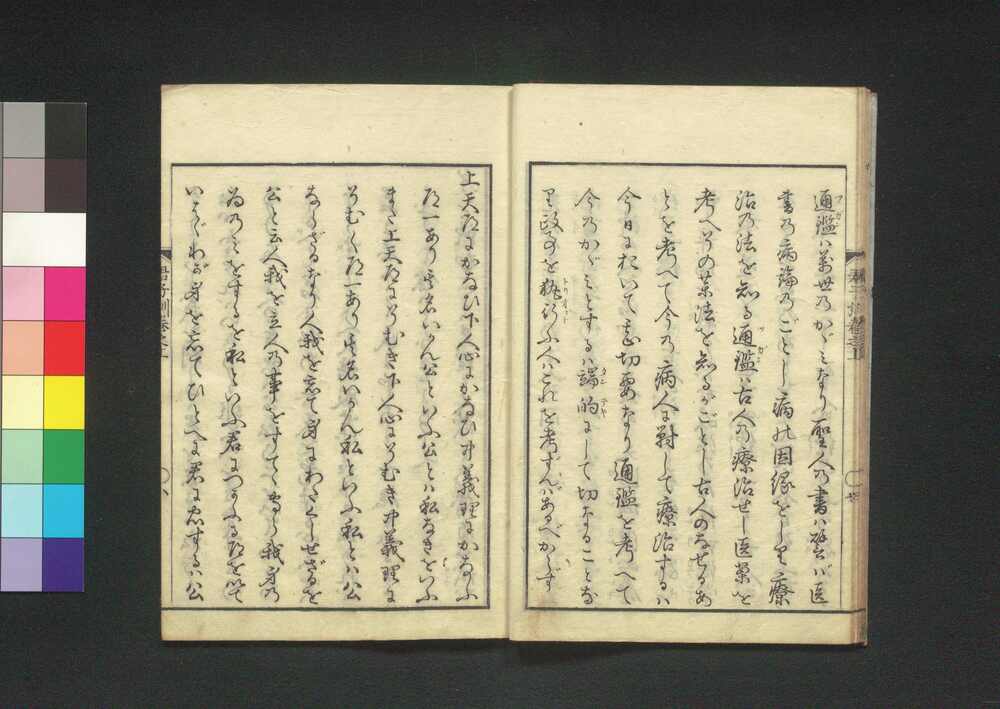 通鑑ハ萬世乃かゞミなり聖人乃書ハ譬ハ医
書乃病論乃ごとし病の因縁をしり療
治乃法を知る通鑑ハ古人乃療治せし医案を
考へその薬法を知るがごとし古人のなせるあ
とを考へて今乃病人に對して療治するハ
今日において尤切要なり通鑑を考へて
今乃かゞミとするハ端的にして切なることな
り政事を執行ふ人ハこれを考ずんバあるべからず
上天道にかなひ下人心にかなひ中義理にかなふ
道一あり其名いかん公といふ公とハ私なきをいふ
また上天道にそむき下人心にそむき中義理に
そむく道一あり其名いかん私といふ私とハ公
ならざるなり人我を忘て身にわたくしせざるを
公と云人我を立人乃事をすてゝ専ら我身乃
為乃ミをするを私といふ君につかふる道を以て
いはゞわが身を忘てひとへに君に忠するハ公
君子訓巻之上